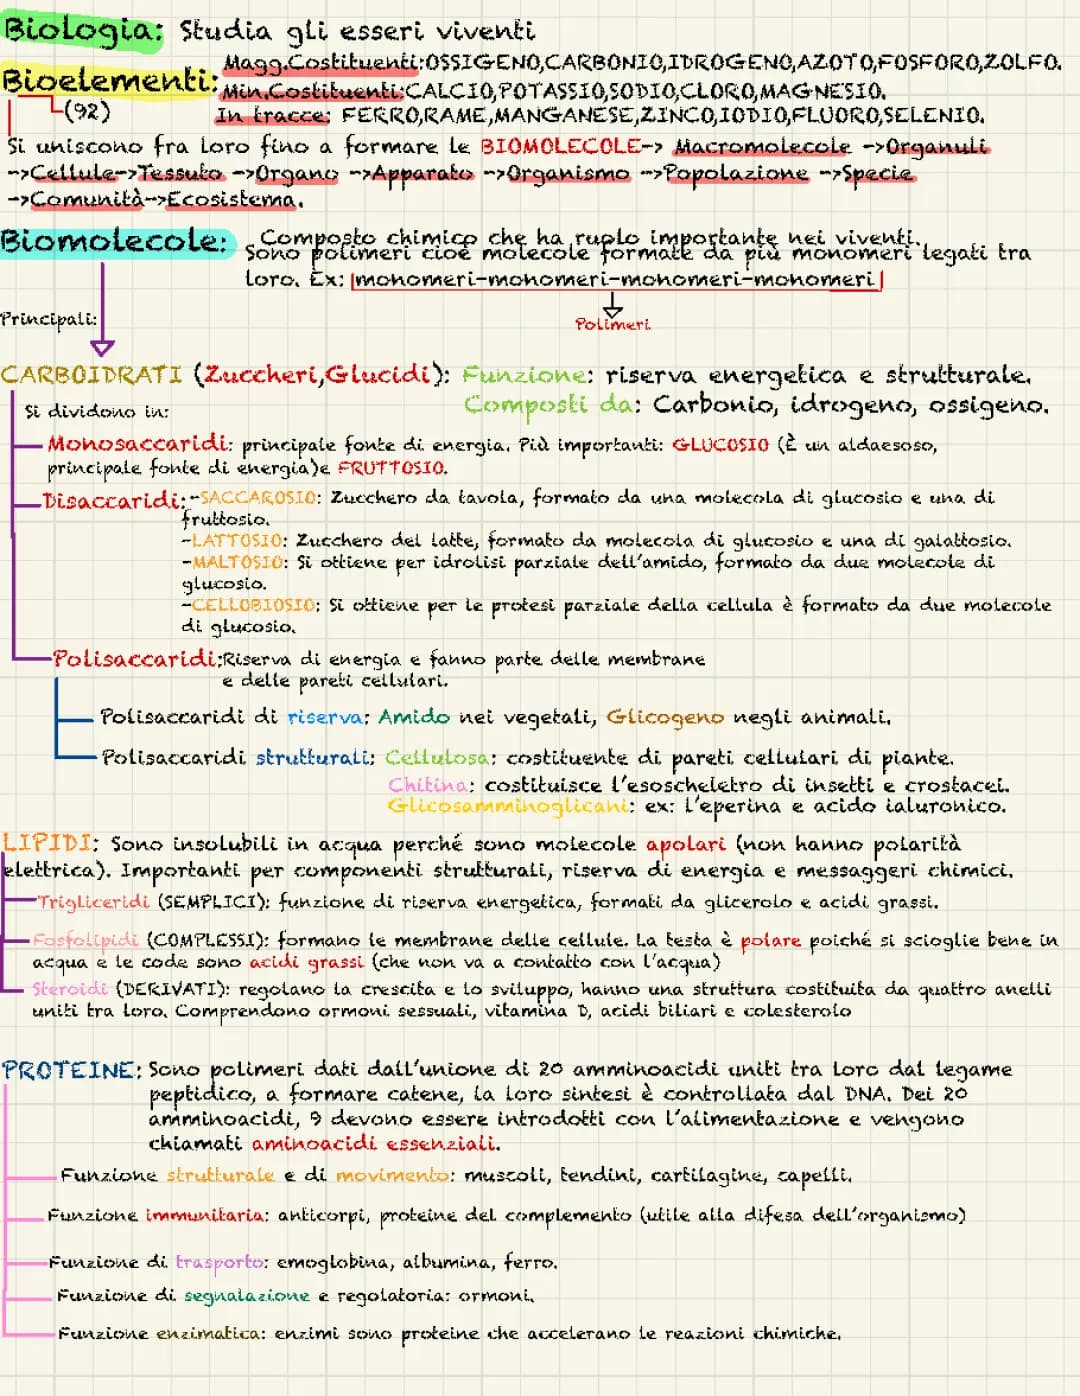 Biologia: Studia gli esseri viventi
Bioelementi: Magg.Costituenti:OSSIGENO,CARBONIO,IDROGENO,AZOTO,FOSFORO,ZOLFO.
Min.Costituenti:CALCIO,POTASSIO,SODIO,CLORO,MAGNESIO.
(92) In tracce: FERRO,RAME,MANGANESE,ZINCO,IODIO,FLUORO,SELENIO.
Si uniscono fra loro fino a formare le BIOMOLECOLE-> Macromolecole ->Organuli
->Cellule->Tessuto ->Organo ->Apparato ->Organismo ->Popolazione ->Specie
->Comunità->Ecosistema.
Biomolecole: Composto chimico che ha ruolo importante nei viventi.
Sono polimeri cioé molecole formate da più monomeri legati tra
loro. Ex: monomeri-monomeri-monomeri-monomeri
Principali:
Polimeri
CARBOIDRATI (Zuccheri,Glucidi): Funzione: riserva energetica e strutturale.
Si dividono in:
Composti da: Carbonio, idrogeno, ossigeno.
Monosaccaridi: principale fonte di energia. Più importanti: GLUCOSIO (È un aldaesoso,
principale fonte di energia)e FRUTTOSIO.
Disaccaridi:-SACCAROSIO: Zucchero da tavola, formato da una molecola di glucosio e una di
fruttosio.
-LATTOSIO: Zucchero del latte, formato da molecola di glucosio e una di galattosio.
-MALTOSIO: Si ottiene per idrolisi parziale dell'amido, formato da due molecole di
glucosio.
-CELLOBIOSIO: Si ottiene per le protesi parziale della cellula è formato da due molecole
di glucosio.
Polisaccaridi:Riserva di energia e fanno parte delle membrane
e delle pareti cellulari.
Polisaccaridi di riserva: Amido nei vegetali, Glicogeno negli animali.
Polisaccaridi strutturali: Cellulosa: costituente di pareti cellulari di piante.
Chitina: costituisce l'esoscheletro di insetti e crostacei.
Glicosamminoglicani: ex: l'eperina e acido ialuronico.
LIPIDI: Sono insolubili in acqua perché sono molecole apolari (non hanno polarità
elettrica). Importanti per componenti strutturali, riserva di energia e messaggeri chimici.
Trigliceridi (SEMPLICI): funzione di riserva energetica, formati da glicerolo e acidi grassi.
Fosfolipidi (COMPLESSI): formano le membrane delle cellule. La testa è polare poiché si scioglie bene in
acqua e le code sono acidi grassi (che non va a contatto con l'acqua)
Steroidi (DERIVATI): regolano la crescita e lo sviluppo, hanno una struttura costituita da quattro anelli
uniti tra loro. Comprendono ormoni sessuali, vitamina D, acidi biliari e colesterolo
PROTEINE: Sono polimeri dati dall'unione di 20 amminoacidi uniti tra loro dal legame
peptidico, a formare catene, la loro sintesi è controllata dal DNA. Dei 20
amminoacidi, 9 devono essere introdotti con l'alimentazione e vengono
chiamati aminoacidi essenziali.
Funzione strutturale e di movimento: muscoli, tendini, cartilagine, capelli.
Funzione immunitaria: anticorpi, proteine del complemento (utile alla difesa dell'organismo)
Funzione di trasporto: emoglobina, albumina, ferro.
Funzione di segnalazione e regolatoria: ormoni.
Funzione enzimatica: enzimi sono proteine che accelerano le reazioni chimiche.